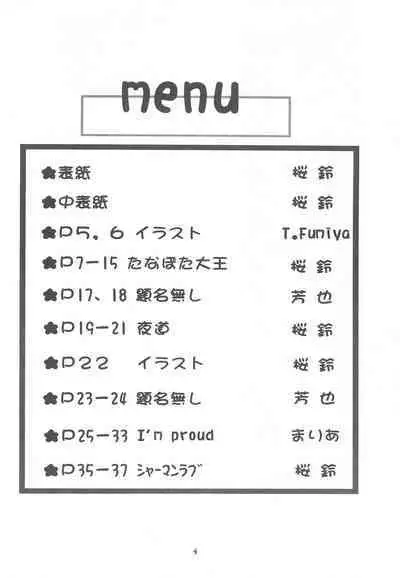 menu
★表紙 桜 鈴
★中表紙 桜 鈴
★P5.6 イラスト T.Fumiya
★P7-15 たなばた大王 桜 鈴
★P17、18 題名無し 芳 也
★P19-21 夜道 桜 鈴
★P22 イラスト 桜 鈴
★P23-24 題名無し 芳 也
★P25-33 I'm proud まりあ
★P35-37 シャーマンラブ 桜 鈴
4